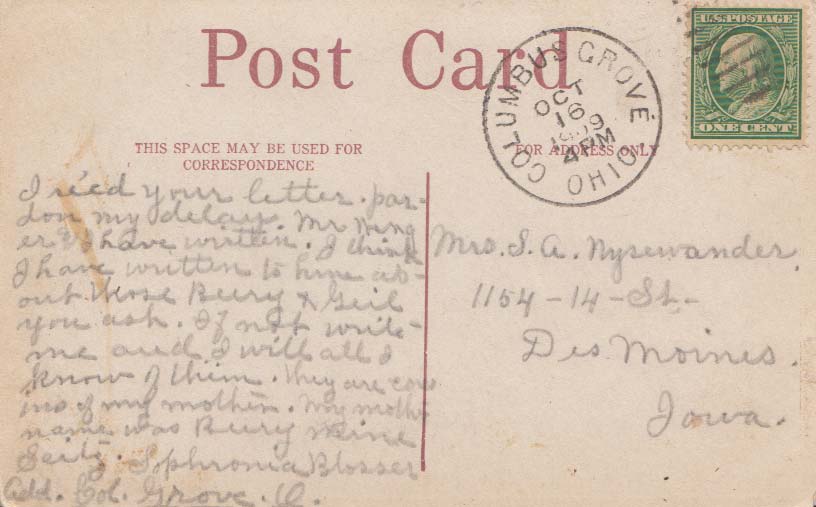 Post Card
COLUMBUS GROVE, OHIO
OCT
16
1909
4 PM
U.S. POSTAGE
ONE CENT
THIS SPACE MAY BE USED FOR
CORRESPONDENCE
FOR ADDRESS ONLY
I re'c'd your letter. par-
don my delay. Mr Weng
er & I have written. I think
I have written to him ab-
out those Beery & Geil
you ask. If not write
me and I will all I
know of them. They are cous
ins of my mother. My mother
name was Beery mine
Seitz. Sophronia Blosser
Add. Col. Grove. O.
Mrs. S. A. Nysewander.
1154-14-St.
Des Moines.
Iowa.